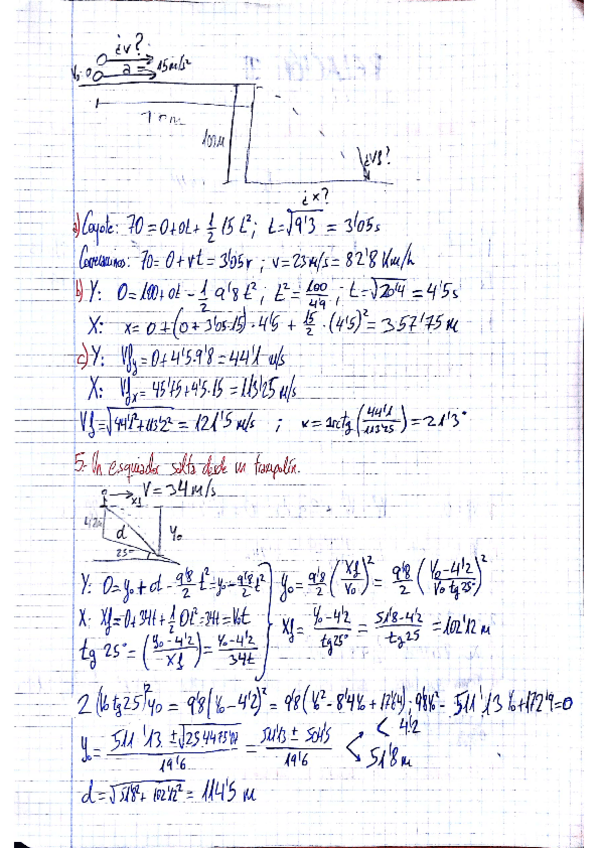 ¿v?
V₀=0 a = 15m/s²
70m
100m
¿vf?
¿x?
a) Coyote: 70 = 0+0t+ 1/2 15 t²; t=√9'3 = 3'05s
Correcaminos: 70= 0+vt= 3'05v ; v=23m/s= 82'8 Km/h
b) Y: 0=100+0t - 1/2 9'8 t²; t²= 100/4'9 ; t=√20'4 =4'5s
X: x= 0+(0+3'05·15)·4'5 + 15/2 ·(4'5)²= 357'75 m
c) Y: Vfy=0+4'5·9'8=44'1 m/s
X: Vfx= 45'75+4'5·15=113'25 m/s
Vf=√44'1²+113'2² = 121'5 m/s ; α=arctg(44'1/113'25)=21'3°
5- Un esquiador salta desde un trampolín.
V=34m/s
4'20
d
25°
y₀
Y: 0=y₀+0t-9'8/2 t²=y₀-9'8/2 t² y₀= 9'8/2 (Xf/V₀)² = 9'8/2 (y₀-4'2/V₀ tg25°)²
X: Xf=0+34t+1/2 0t²=34t=V₀t Xf= y₀-4'2/tg25° = 51'8-4'2/tg25 =102'12 m
tg 25°=(y₀-4'2/Xf)= y₀-4'2/34t
2(V₀ tg25)² y₀ = 9'8(y₀-4'2)² = 9'8(y₀²-8'4y₀+17'64); 9'8y₀²- 511'13 y₀+172'9=0
y₀= 511'13 ± / 19'6 = 511'13 ± 504'5 / 19'6 < 4'2
51'8m
d=√51'8²+102'12² = 114'5 m